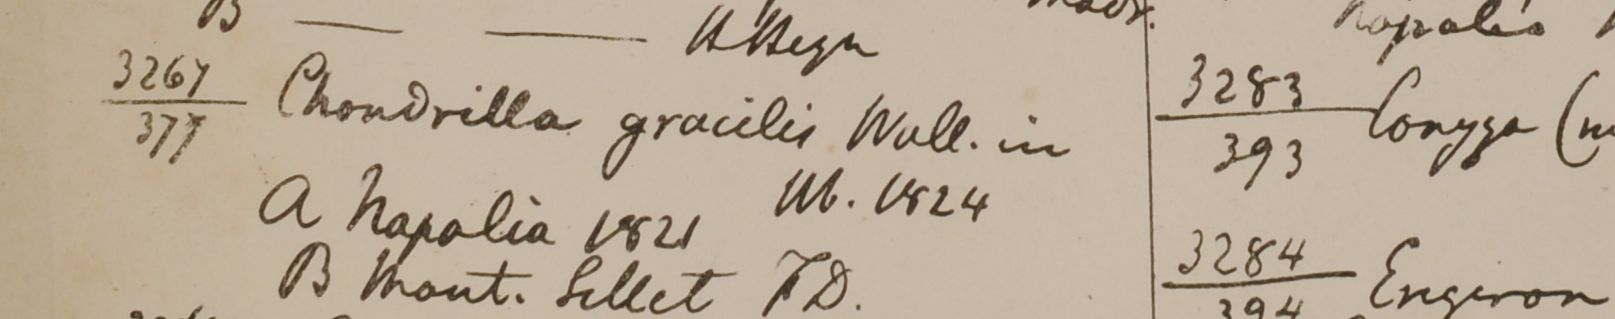 B —— —— H Heyn
3267
377
Chondrilla gracilis Wall. in
M. 1824
A Napalia 1821
B Mont. Sillet F.D.
3283
393
Conyza
3284
394
Engeron